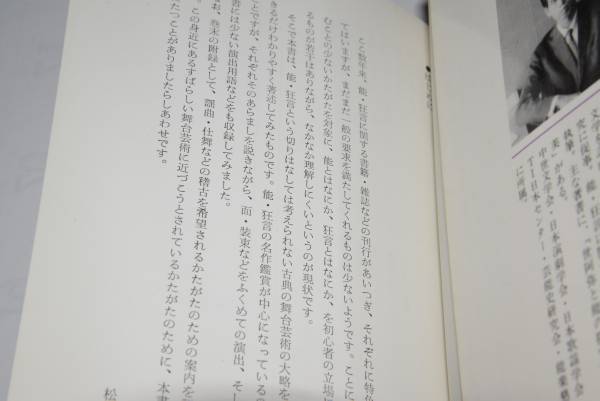 文学
究に従事。能・狂言に関
執筆、主な著書に、『世阿弥と能の
美』がある。
中世文学会・日本演劇学会・日本歌謡学会
TI日本センター・芸能史研究会・能楽
に所属。
ここ数年来、能・狂言に関する書籍・雑誌などの刊行があいつぎ、それぞれに特色
てはいますが、まだまだ一般の要求を満たしてくれるものは少ないようです。ことに
むことの少ないかたがたを対象に、能とはなにか、狂言とはなにか、を初心者の立場
るものが若干はありながら、なかなか理解しにくいというのが現状です。
そこで本書は、能・狂言という切りはなしては考えられない古典の舞台芸術の大略を
きるだけわかりやすく著述してみたものです。能・狂言の名作鑑賞が中心になっているの
ことですが、それぞれそのあらましを説きながら、面・装束などをふくめての演出、そし
書には少ない演出用語なども収録してみました。
お、巻末の附録として、謡曲・仕舞などの稽古を希望されるかたがたのための案内を
。この身近にあるすばらしい舞台芸術に近づこうとされているかたがたのために、本書
たつことがありましたらしあわせです。
松